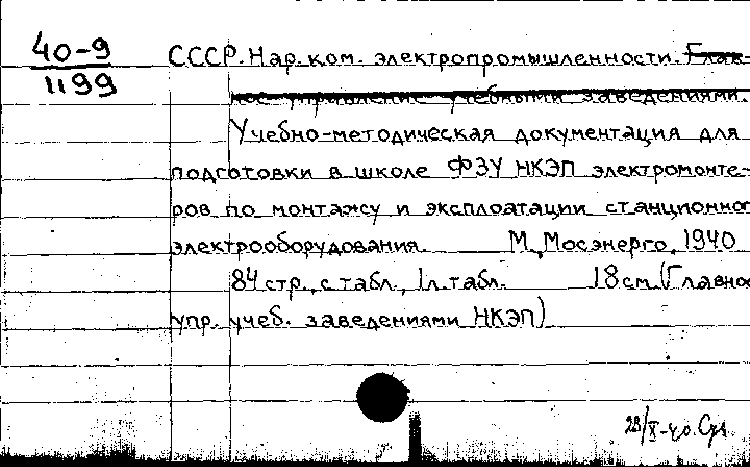 40-9
1199
СССР. Нар. ком. электропромышленности. Глав-
ное управление учебными заведениями.
Учебно-методическая документация для
подготовки в школе ФЗУ НКЭП электромонте-
ров по монтажу и эксплоатации станционного
электрооборудования. М., Мосэнерго, 1940
84 стр., с табл., 1 л. табл. 18 см. (Главное
упр. учеб. заведениями НКЭП)
29/X-40.